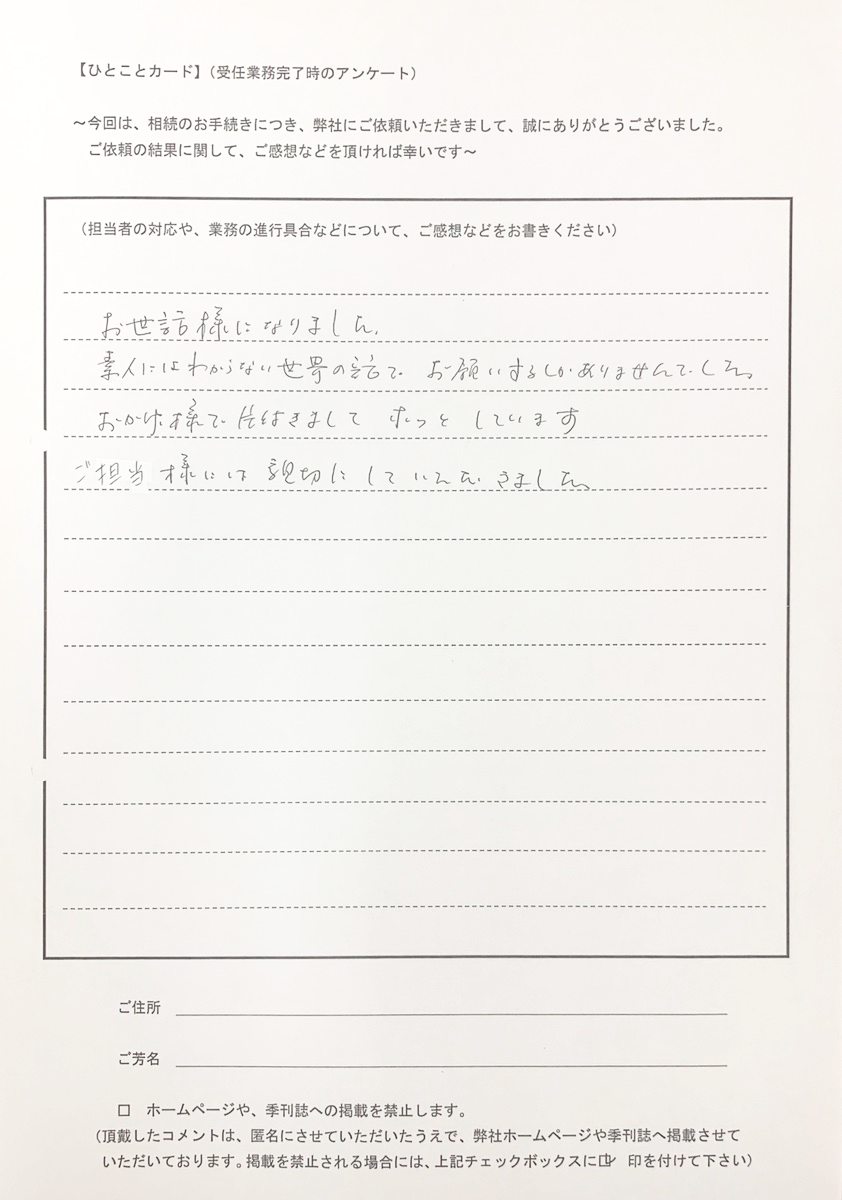 【ひとことカード】（受任業務完了時のアンケート）
～今回は、相続のお手続きにつき、弊社にご依頼いただきまして、誠にありがとうございました。
ご依頼の結果に関して、ご感想などを頂ければ幸いです～
（担当者の対応や、業務の進行具合などについて、ご感想などをお書きください）
お世話様になりました。
素人にはわからない世界の話で お願いするしかありませんでした。
おかげ様で片付きまして ホッと しています
ご担当様には親切にしていただきました。
ご住所
ご芳名
□ ホームページや、季刊誌への掲載を禁止します。
（頂戴したコメントは、匿名にさせていただいたうえで、弊社ホームページや季刊誌へ掲載させて
いただいております。掲載を禁止される場合には、上記チェックボックスに☑ 印を付けて下さい）